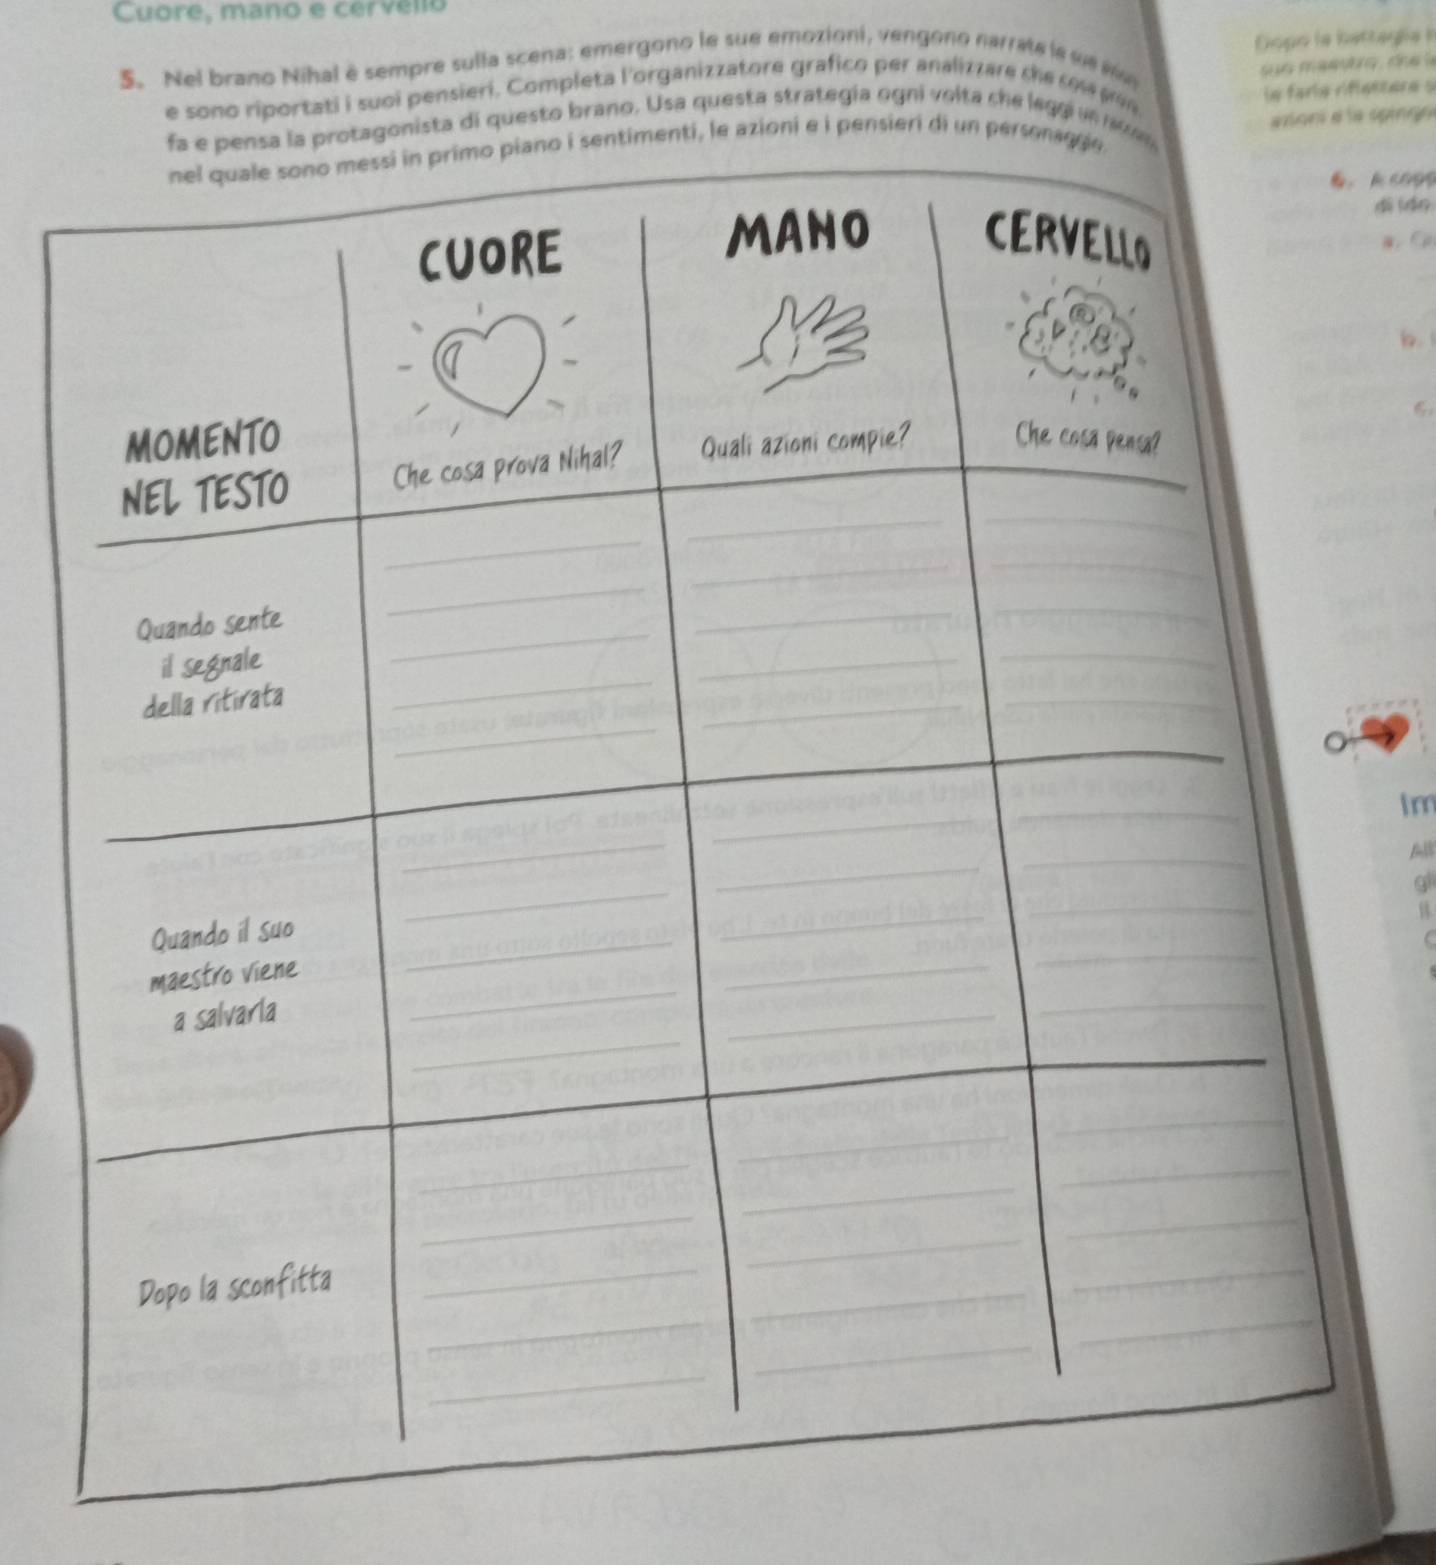 Cuore, mano e cervello
5. Nel brano Nihal è sempre sulla scena: emergono le sue emozioni, vengono narrate le sue
e sono riportati i suoi pensieri. Completa l'organizzatore grafico per analizzare che cosa
fa e pensa la protagonista di questo brano. Usa questa strategia ogni volta che leggi un
nel quale sono messi in primo piano i sentimenti, le azioni e i pensieri di un personaggio.
CUORE
MANO
CERVELLO
MOMENTO
NEL TESTO
Che cosa prova Nihal?
Quali azioni compie?
Che cosa pensa?
Quando sente
il segnale
della ritirata
Quando il suo
maestro viene
a salvarla
Dopo la sconfitta
Dopo la battaglia
suo maestro, che
le farla riflettere
azioni e la
6. A
di
a.
b.
c.
Im
All
gli
Il